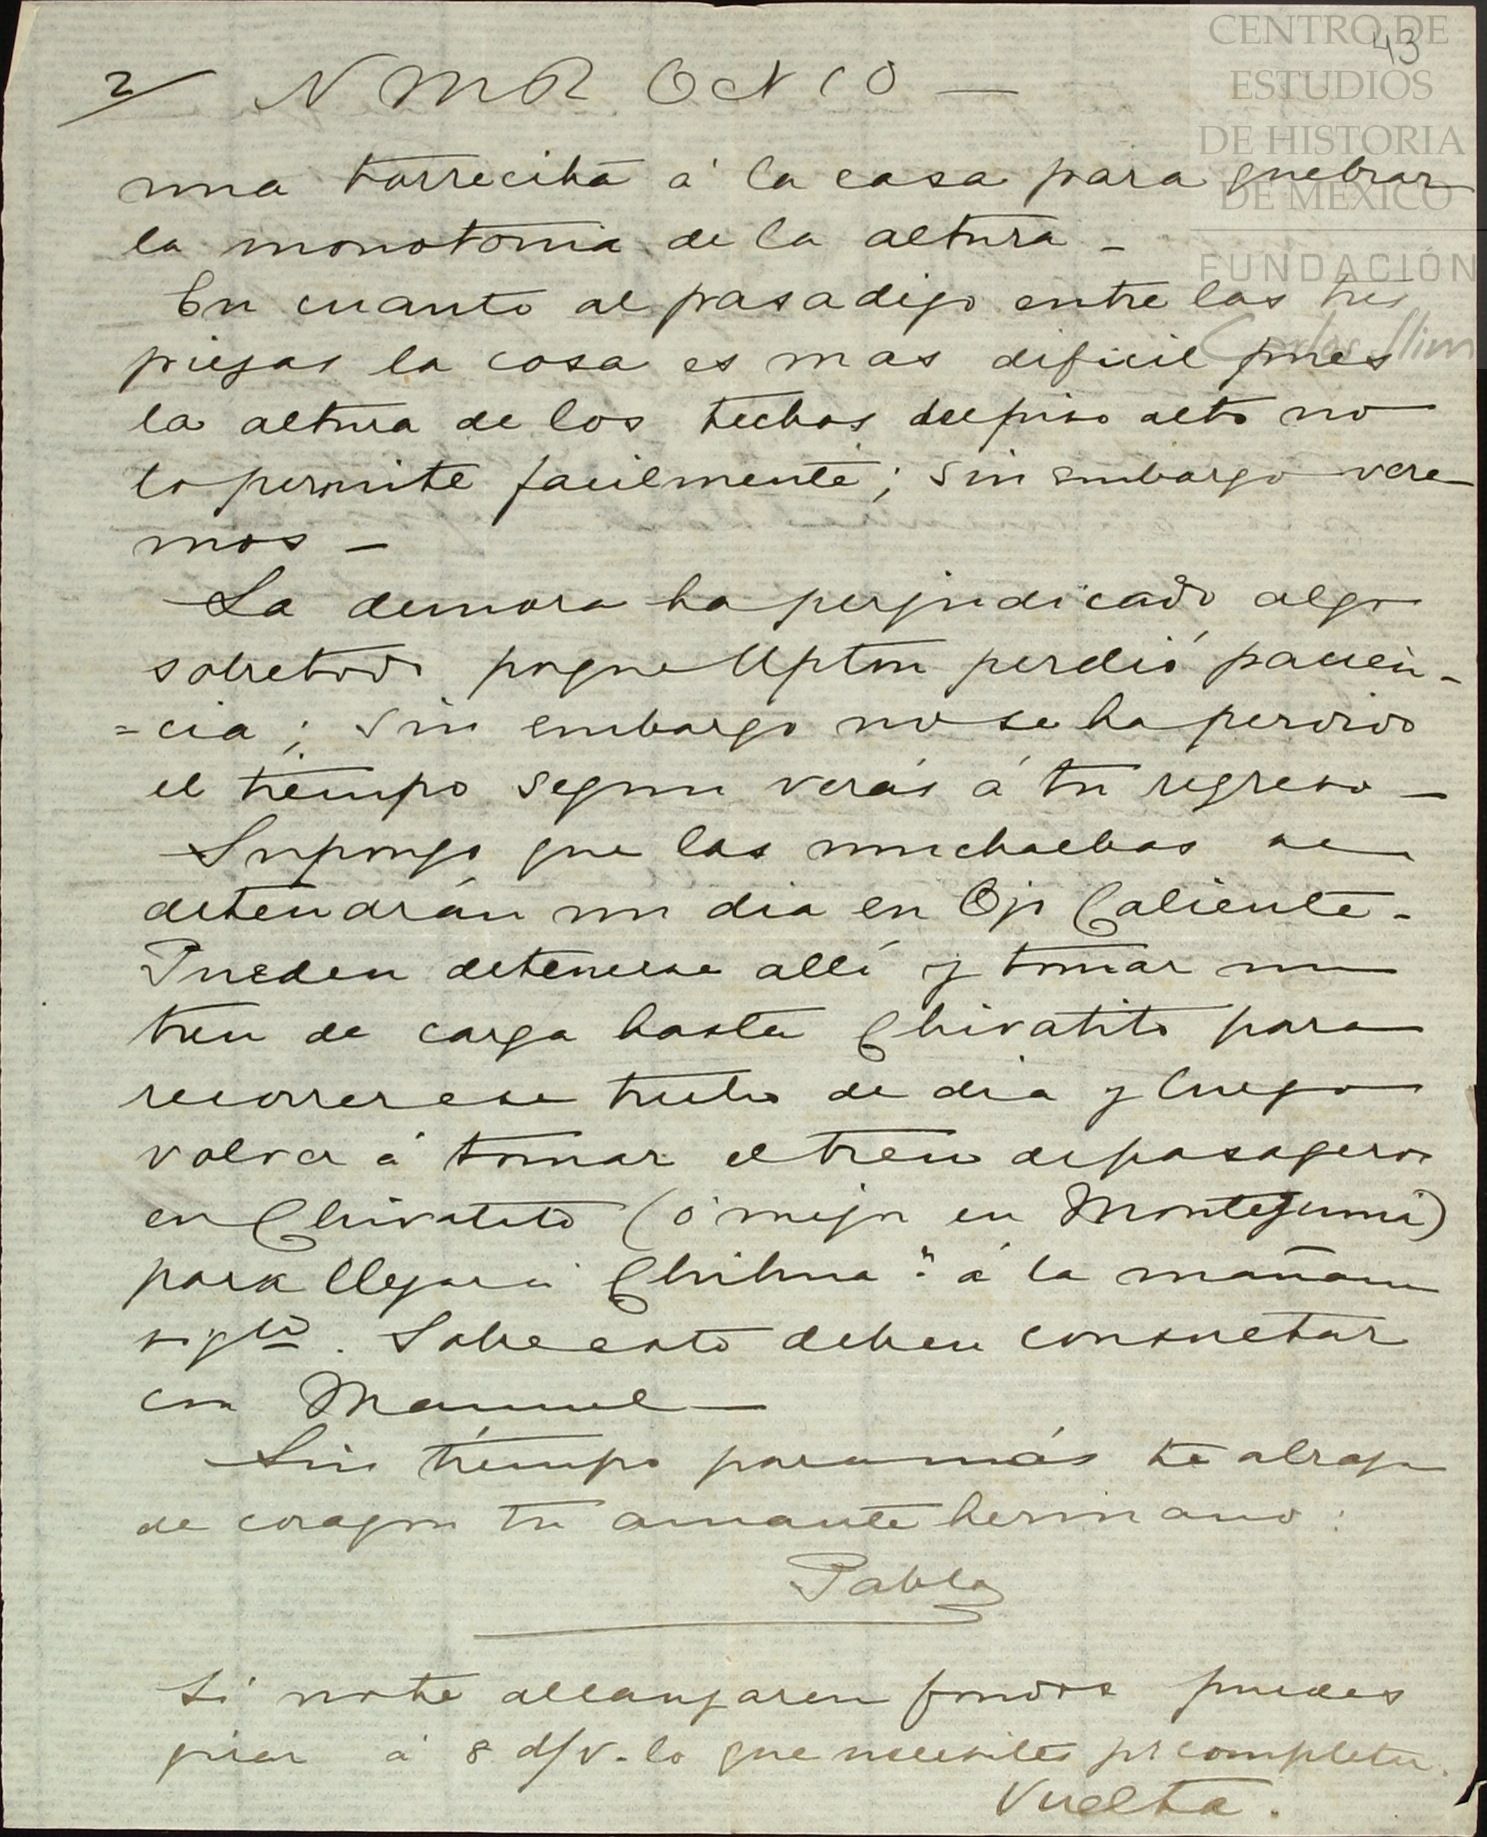 43
CENTRO DE
ESTUDIOS
DE HISTORIA
DE MÉXICO
FUNDACIÓN
Carlos Slim
2/ N M R Oct 10 —
una torrecita á la casa para quebrar
la monotonia de la altura –
En cuanto al pasadizo entre las tres
piezas la cosa es mas dificil pues
la altura de los techos del piso alto no
lo permite facilmente; sin embargo vere
mos –
La demora ha perjudicado algo
sobretodo porque Upton perdió pacien-
=cia; sin embargo no se ha perdido
el tiempo segun verás á tu regreso –
Supongo que las muchachas se
detendrán un dia en Ojo Caliente –
Pueden detenerse allí y tomar un
tren de carga hasta Chivatito para
recorrer ese trecho de dia y luego
volver á tomar el tren de pasageros
en Chivatito (ó mejor en Montezuma)
para llegar á Chihua.ª á la mañana
sigte. Sobre esto deben consultar
con Manuel –
Sin tiempo para más te abraza
de corazon tu amante hermano:
Pablo
Si no te alcanzaren fondos puedes
girar á 8 d/v. lo que necesites pr completar.
Vuelta.